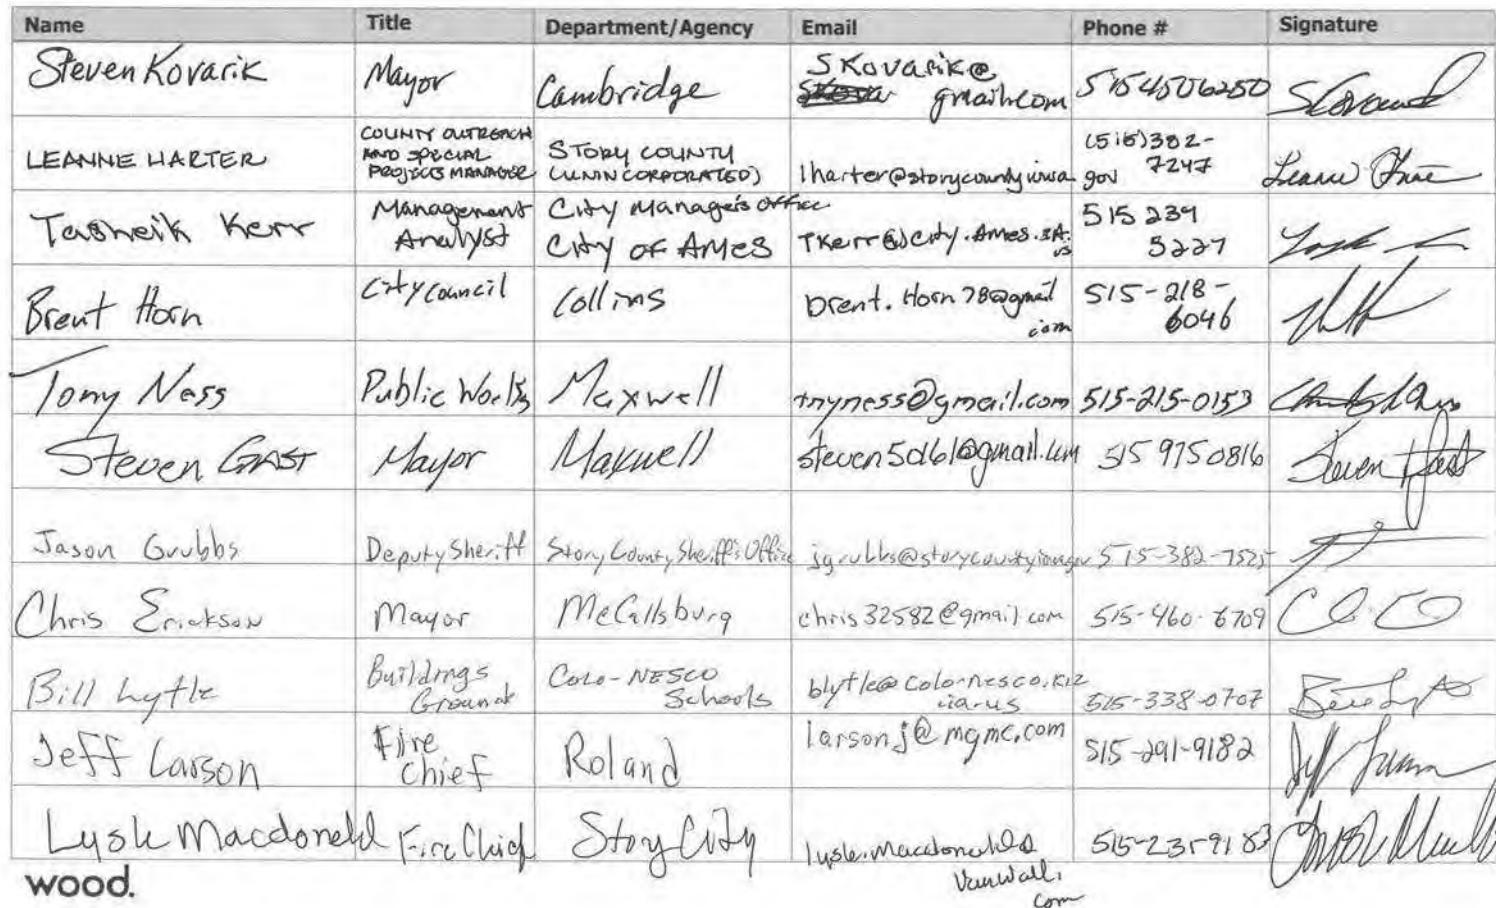 Name Title Department/Agency Email Phone # Signature
Steven Kovarik Mayor Cambridge SKovarik@ gmail.com 5154506250
LEANNE HARTER COUNTY OUTREACH AND SPECIAL PROJECTS MANAGER STORY COUNTY (UNINCORPORATED) lharter@storycountyiowa gov (515)382-7247
Tasheik Kerr Management Analyst City Manager's Office City of Ames TKerr@city.Ames.IA.us 515 239 5227
Brent Horn City Council Collins brent.Horn78@gmail com 515-218-6046
Tony Ness Public Works Maxwell tnyness@gmail.com 515-215-0153
Steven GAST Mayor Maxwell steven5d61@gmail.com 515 975 0816 Steven Gast
Jason Grubbs Deputy Sheriff Story County Sheriff's Office jgrubbs@storycountyiowagov 515-382-7525
Chris Erickson Mayor McCallsburg chris32582@gmail.com 515-460-6709
Bill Lytle Buildings Grounds Colo-NESCO Schools blytle@colo-nesco.k12 .ia.us 515-338-0707
Jeff Larson Fire Chief Roland larsonj@mgmc.com 515-291-9182 Jeff Larson
Macdonald Fire Chief Story City 515-231-9183
wood.